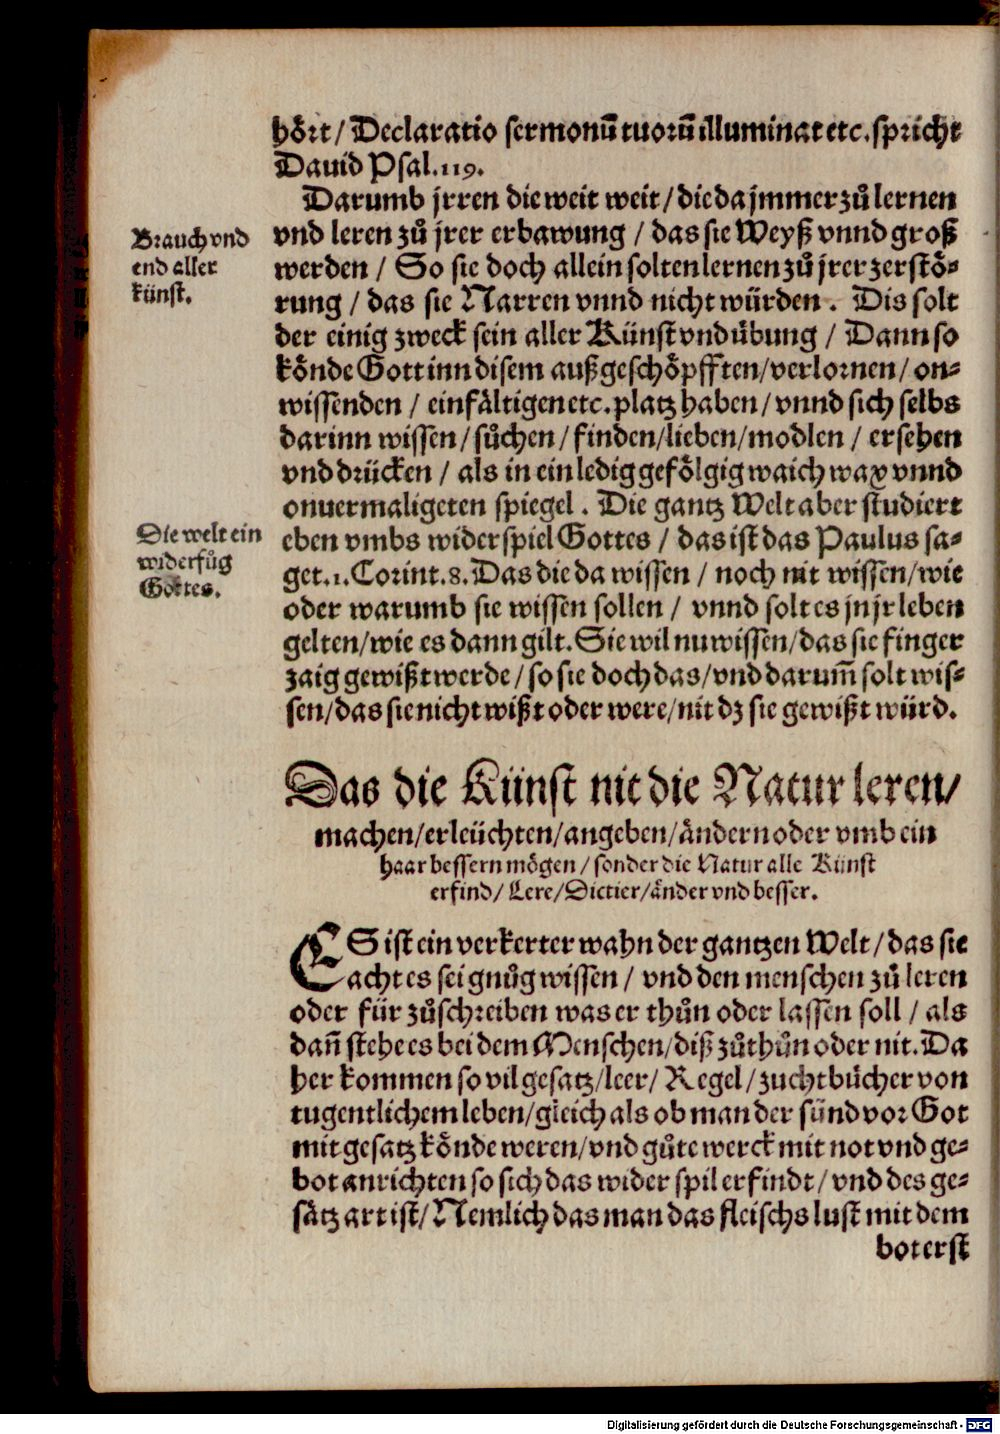 hoͤrt / Declaratio sermonū tuorū illuminat etc. spricht
Dauid Psal. 119.
Darumb jrren die weit weit / die da jmmer zuͦ lernen
vnd leren zuͦ jrer erbawung / das sie Weyß vnnd groß
werden / So sie doch allein solten lernen zuͦ jrer zerstoͤ-
rung / das sie Narren vnnd nicht würden . Dis solt
der einig zweck sein aller Künst vnd uͤbung / Dann so
koͤnde Gott inn disem außgeschoͤpfften / verlornen / on-
wissenden / einfaͤltigen etc. platz haben / vnnd sich selbs
darinn wissen / suͦchen / finden / lieben / modlen / ersehen
vnd drücken / als in ein ledig gefoͤlgig waich wax vnnd
onuermaligeten spiegel . Die gantz Welt aber studiert
eben vmbs widerspiel Gottes / das ist das Paulus sa-
get. 1. Corint. 8. Das die da wissen / noch nit wissen / wie
oder warumb sie wissen sollen / vnnd solt es jn jr leben
gelten / wie es dann gilt. Sie wil nu wissen / das sie finger
zaig gewißt werde / so sie doch das / vnd darum̄ solt wis-
sen / das sie nicht wißt oder were / nit dz sie gewißt würd.
Brauch vnd
end aller
künst.
Die welt ein
widerfuͦg
Gottes.
Das die Künst nit die Natur leren /
machen / erleüchten / angeben / aͤndern oder vmb ein
haar bessern moͤgen / sonder die Natur alle Künst
erfind / Lere / Dictier / aͤnder vnd besser.
ES ist ein verkerter wahn der gantzen Welt / das sie
acht es sei gnuͦg wissen / vnd den menschen zuͦ leren
oder für zuͦschreiben was er thuͦn oder lassen soll / als
dan̄ stehe es bei dem Menschen / diß zuͦthuͦn oder nit. Da
her kommen so vil gesatz / leer / Regel / zuchtbuͤcher von
tugentlichem leben / gleich als ob man der sünd vor Got
mit gesatz koͤnde weren / vnd guͦte werck mit not vnd ge-
bot anrichten so sich das wider spil erfindt / vnd des ge-
saͤtz art ist / Nemlich das man das fleischs lust mit dem
bot erst
Digitalisierung gefördert durch die Deutsche Forschungsgemeinschaft - DFG